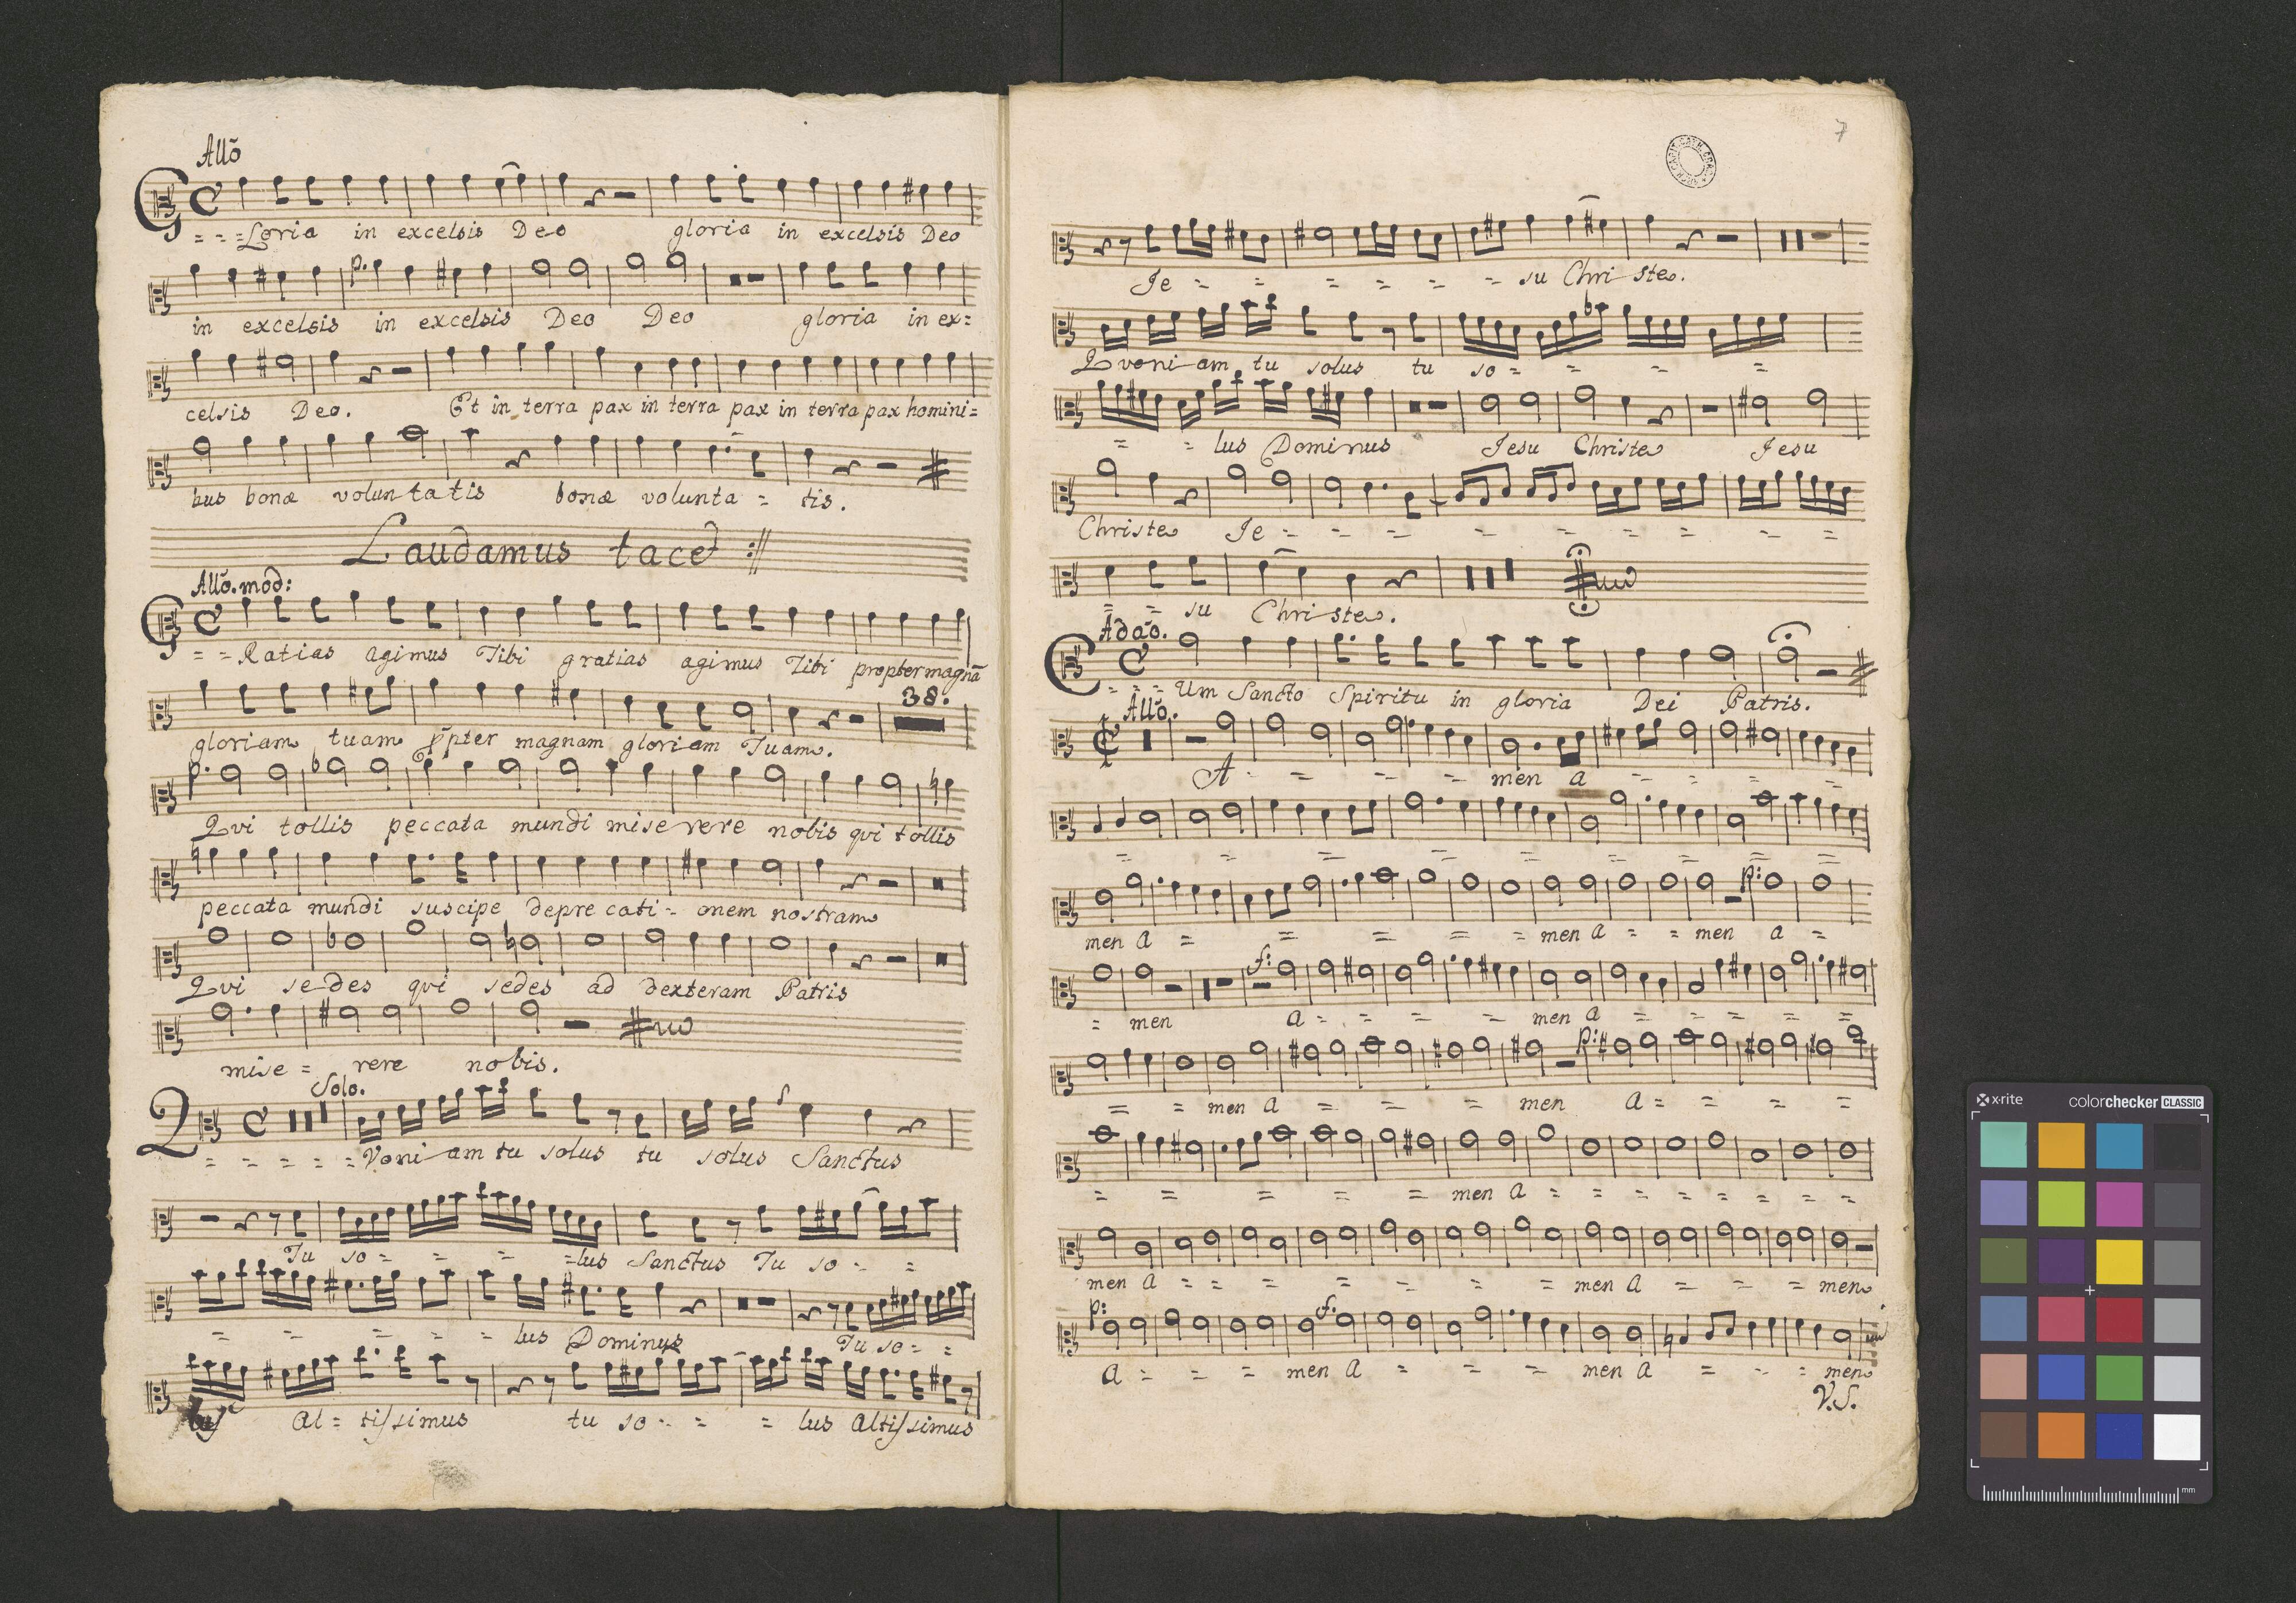 Allõ
G = = = Loria in excelsis Deo gloria in excelsis Deo
p.
in excelsis in excelsis Deo Deo gloria in ex=
celsis Deo. Et in terra pax in terra pax in terra pax homini=
bus bonæ voluntatis bonæ volunta = tis.
Laudamus tacet
Allõ. mod:
G = = Ratias agimus Tibi gratias agimus Tibi propter magnã
38.
gloriam tuam p̃pter magnam gloriam Tuam.
p.
Qvi tollis peccata mundi miserere nobis qvi tollis
peccata mundi suscipe deprecati = onem nostram
Qvi sedes qvi sedes ad dexteram Patris
mise = rere nobis.
Solo.
Q = = = = = Voni am tu solus tu solus Sanctus
Tu so = = = = lus Sanctus Tu so = =
= = = = = lus Dominus Tu so = =
lus Al = tissimus tu so = = = lus Altissimus
7
Je = = = = = = su Christe.
Qvoni am tu solus tu so = = = =
= = lus Dominus Jesu Christe Jesu
Christe Je = = = = = = = = =
= = su Christe.
Adaõ.
C = = = Um Sancto Spiritu in gloria Dei Patris.
Allõ.
A = = = = men a = = = =
= = = = = = = =
p:
men a = = = = = men a = = men a =
f:
= men a = = = = men a = = = = =
p:
= = men a = = = men a = = = =
= = = = = men a = = = = = = = =
men a = = = = = = = men a = = = men
p: f.
a = = = men a = = = men a = = = men
V.S.